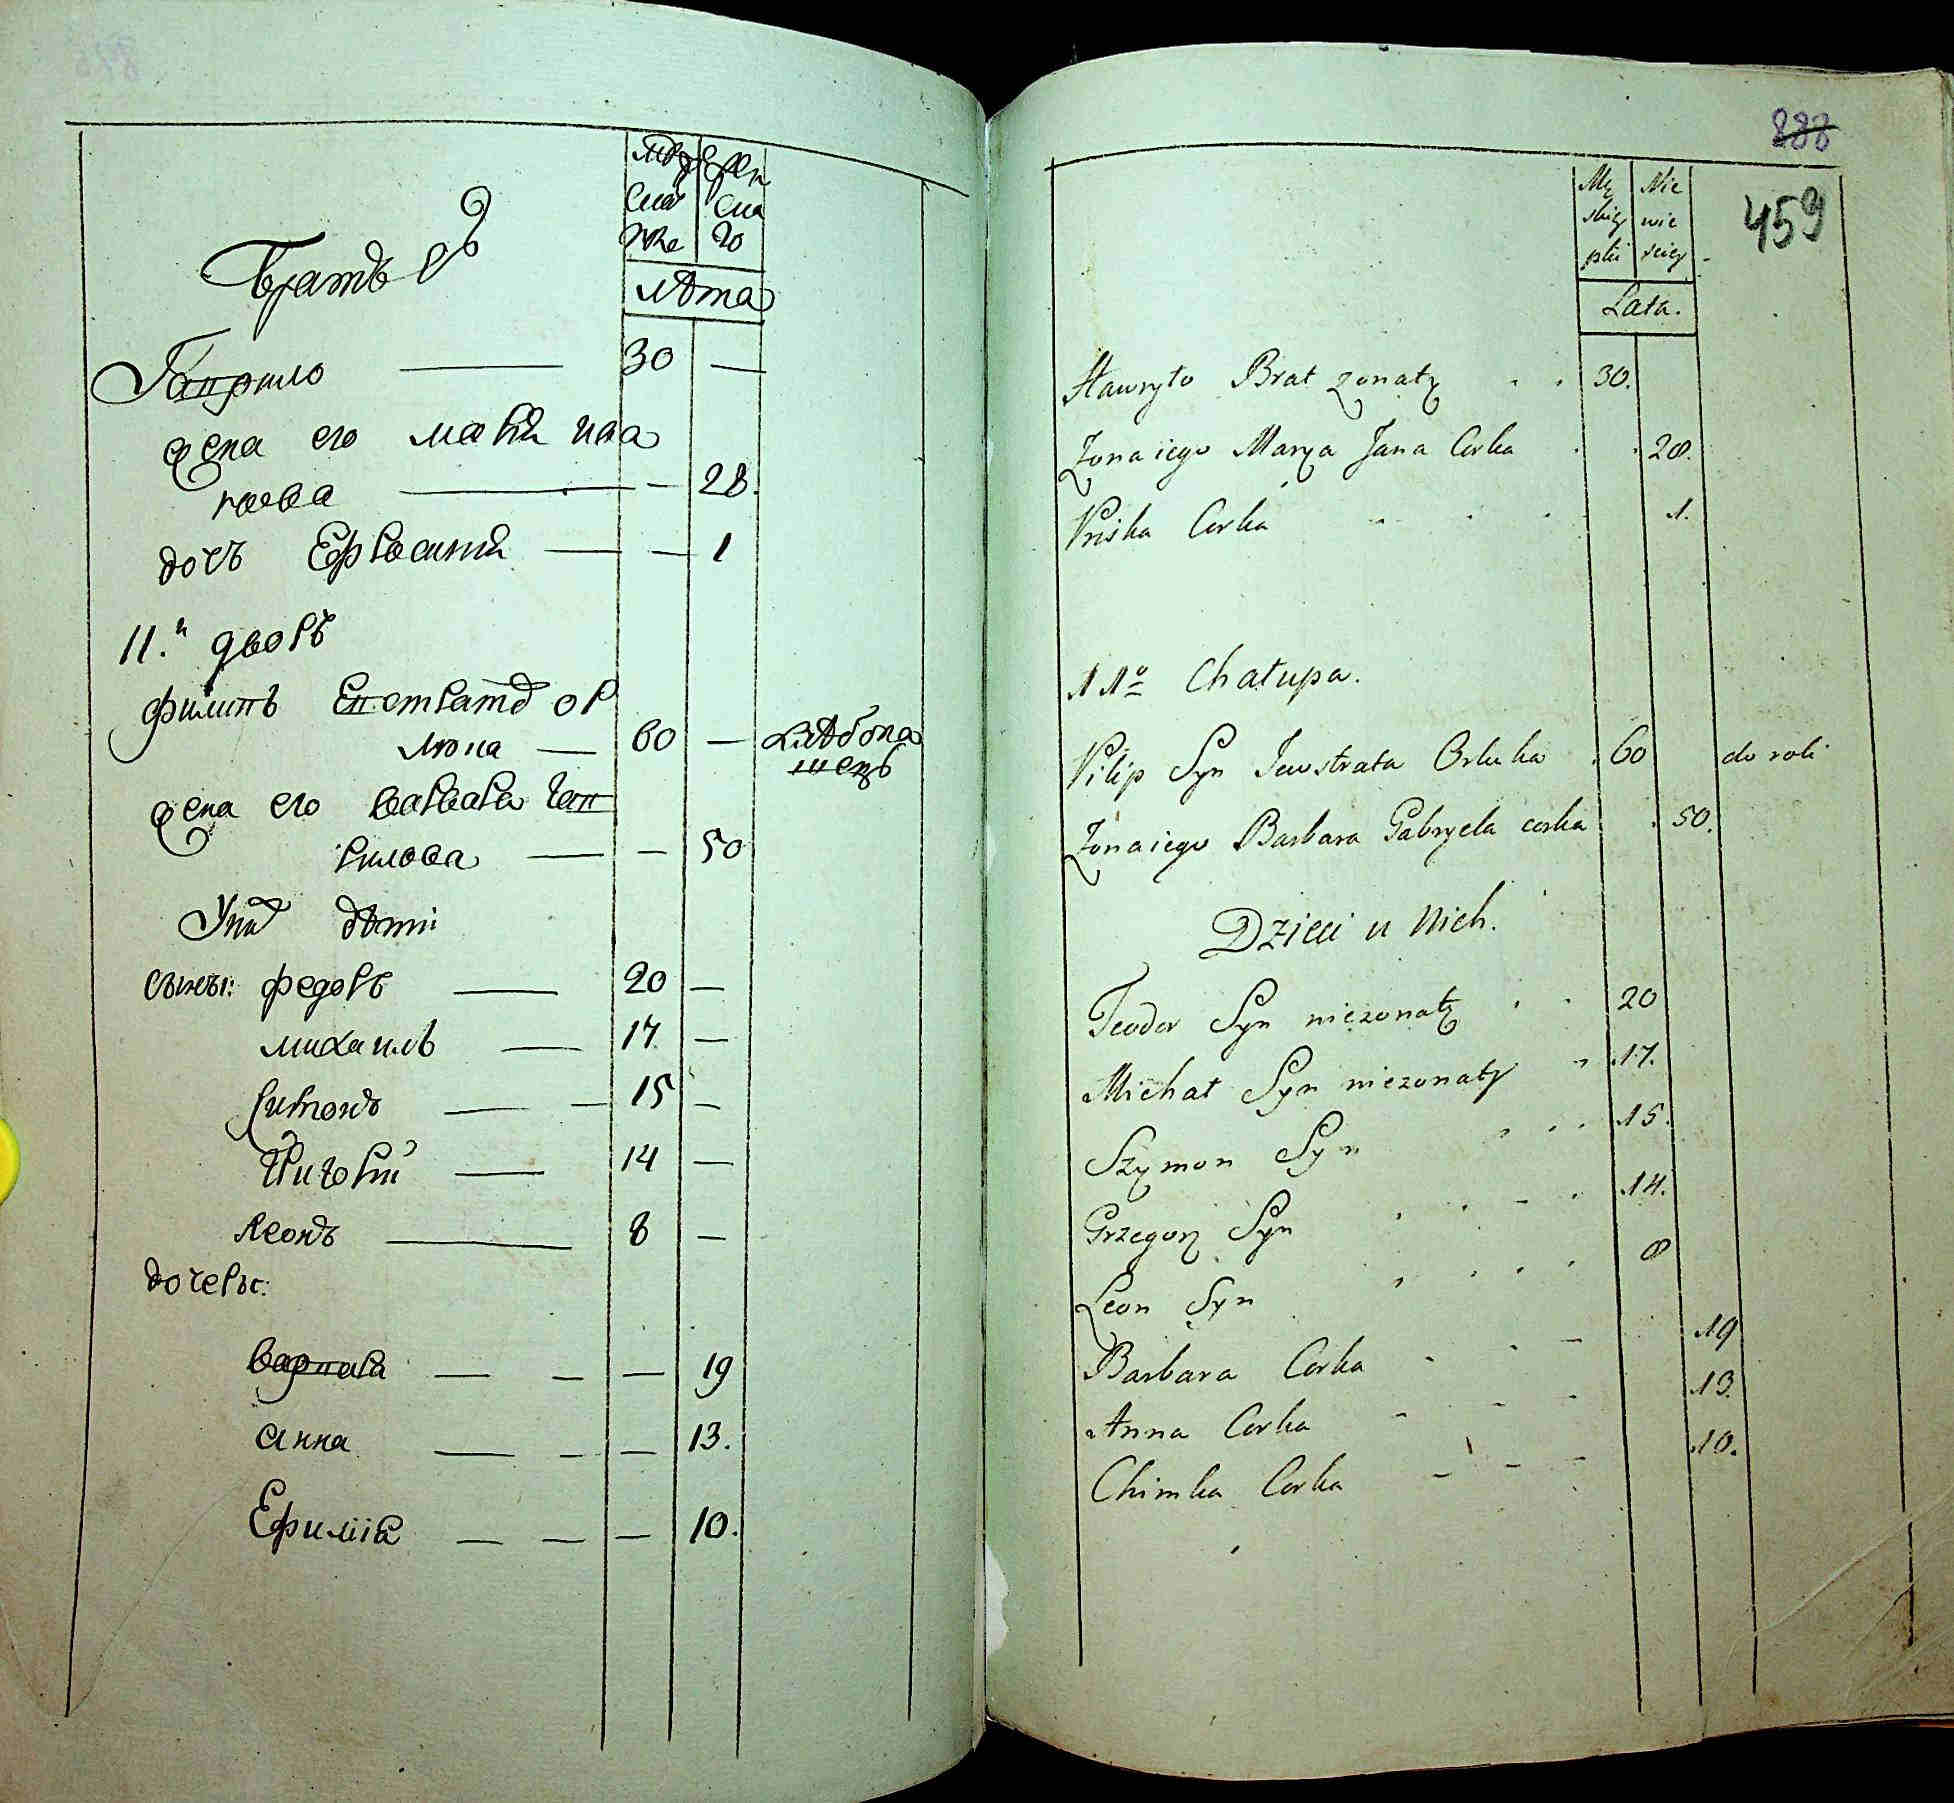 Братъ ево
Гаврило — 30 —
жена его Марія Ива
нова — 28.
дочъ Ефросинія — — 1
11.й дворъ
Филипъ Евстратов Ор
люка — 60 — хлѣбопа
шецъ
жена его Варвара Гав
рилова — — 50
У них дѣти
сыны: Федоръ — 20 —
Михаилъ — 17. —
Симонъ — 15 —
Григорій — 14 —
Леонъ — 8 —
дочеры:
Варвара — — — 19
Анна — — — 13.
Ефимія — — — 10.
888
459
Mę Nie
skiey wie
płci sciey
Lata.
Hawryło Brat zonaty 30.
Zona iego Marya Jana Corka 28.
Priska Corka 1.
11º Chałupa.
Filip Syn Jewstrata Orluka 60 do roli
Zona iego Barbara Gabryela corka 50.
Dzieci u Nich.
Teodor Syn niezonaty 20
Michał Syn niezonaty 17.
Szymon Syn 15.
Grzegorz Syn 14.
Leon Syn 8
Barbara Corka 19
Anna Corka 13.
Chimka Corka 10.